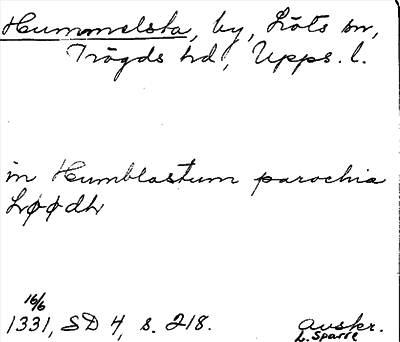 Hummelsta, by, Löts sn,
Trögds hd, Upps. l.
in Humblastum parochia
Løødh
16/6
1331, SD 4, s. 218.
avskr.
L. Sparre